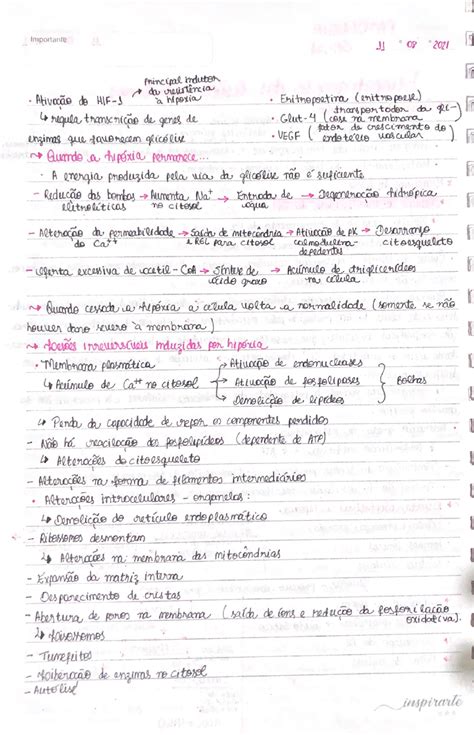 Importante
11 08 2021
principal indutor
da resistência
à hipóxia
• Ativação do HIF-1
↳ regula transcrição de genes de
enzimas que favorecem glicólise
• Eritropoetina (eritropoese)
• Glut-4 (transportador da gli-
cose na membrana)
• VEGF (fator de crescimento do
endotélio vascular)
↝ Quando a hipóxia permanece...
• A energia produzida pela via da glicólise não é suficiente
- Redução das bombas → Aumenta Na⁺ → Entrada de → Degeneração hidrópica
eletrolíticas no citosol água
- Alteração da permeabilidade → Saída de mitocôndria → Ativação de PK → Desarranjo
do Ca⁺⁺ e REL para citosol calmodulina- citoesqueleto
dependentes
- Oferta excessiva de acetil-CoA → Síntese de → Acúmulo de triglicerídeos
ácido graxo na célula
↝ Quando cessada a hipóxia a célula volta a normalidade (somente se não
houver dano severo à membrana)
↝ Lesões irreversíveis induzidas por hipóxia
• Membrana plasmática
↳ Acúmulo de Ca⁺⁺ no citosol
→ Ativação de endonucleases
→ Ativação de fosfolipases
→ Demolição de lipídeos
Bolhas
↳ Perda da capacidade de repor os componentes perdidos
- Não há reacilação dos fosfolipídeos (dependente de ATP)
↳ Alterações do citoesqueleto
- Alterações na forma de filamentos intermediários
• Alterações intracelulares - organelas:
↳ Demolição do retículo endoplasmático
- Ribossomos desmontam
↳ Alterações na membrana das mitocôndrias
- Expansão da matriz interna
- Desparecimento de cristas
- Abertura de poros na membrana (saída de íons e redução da fosforilação
oxidativa).
↳ Lisossomos
- Tumefeitos
- Liberação de enzimas no citosol
- Autólise
inspirarte